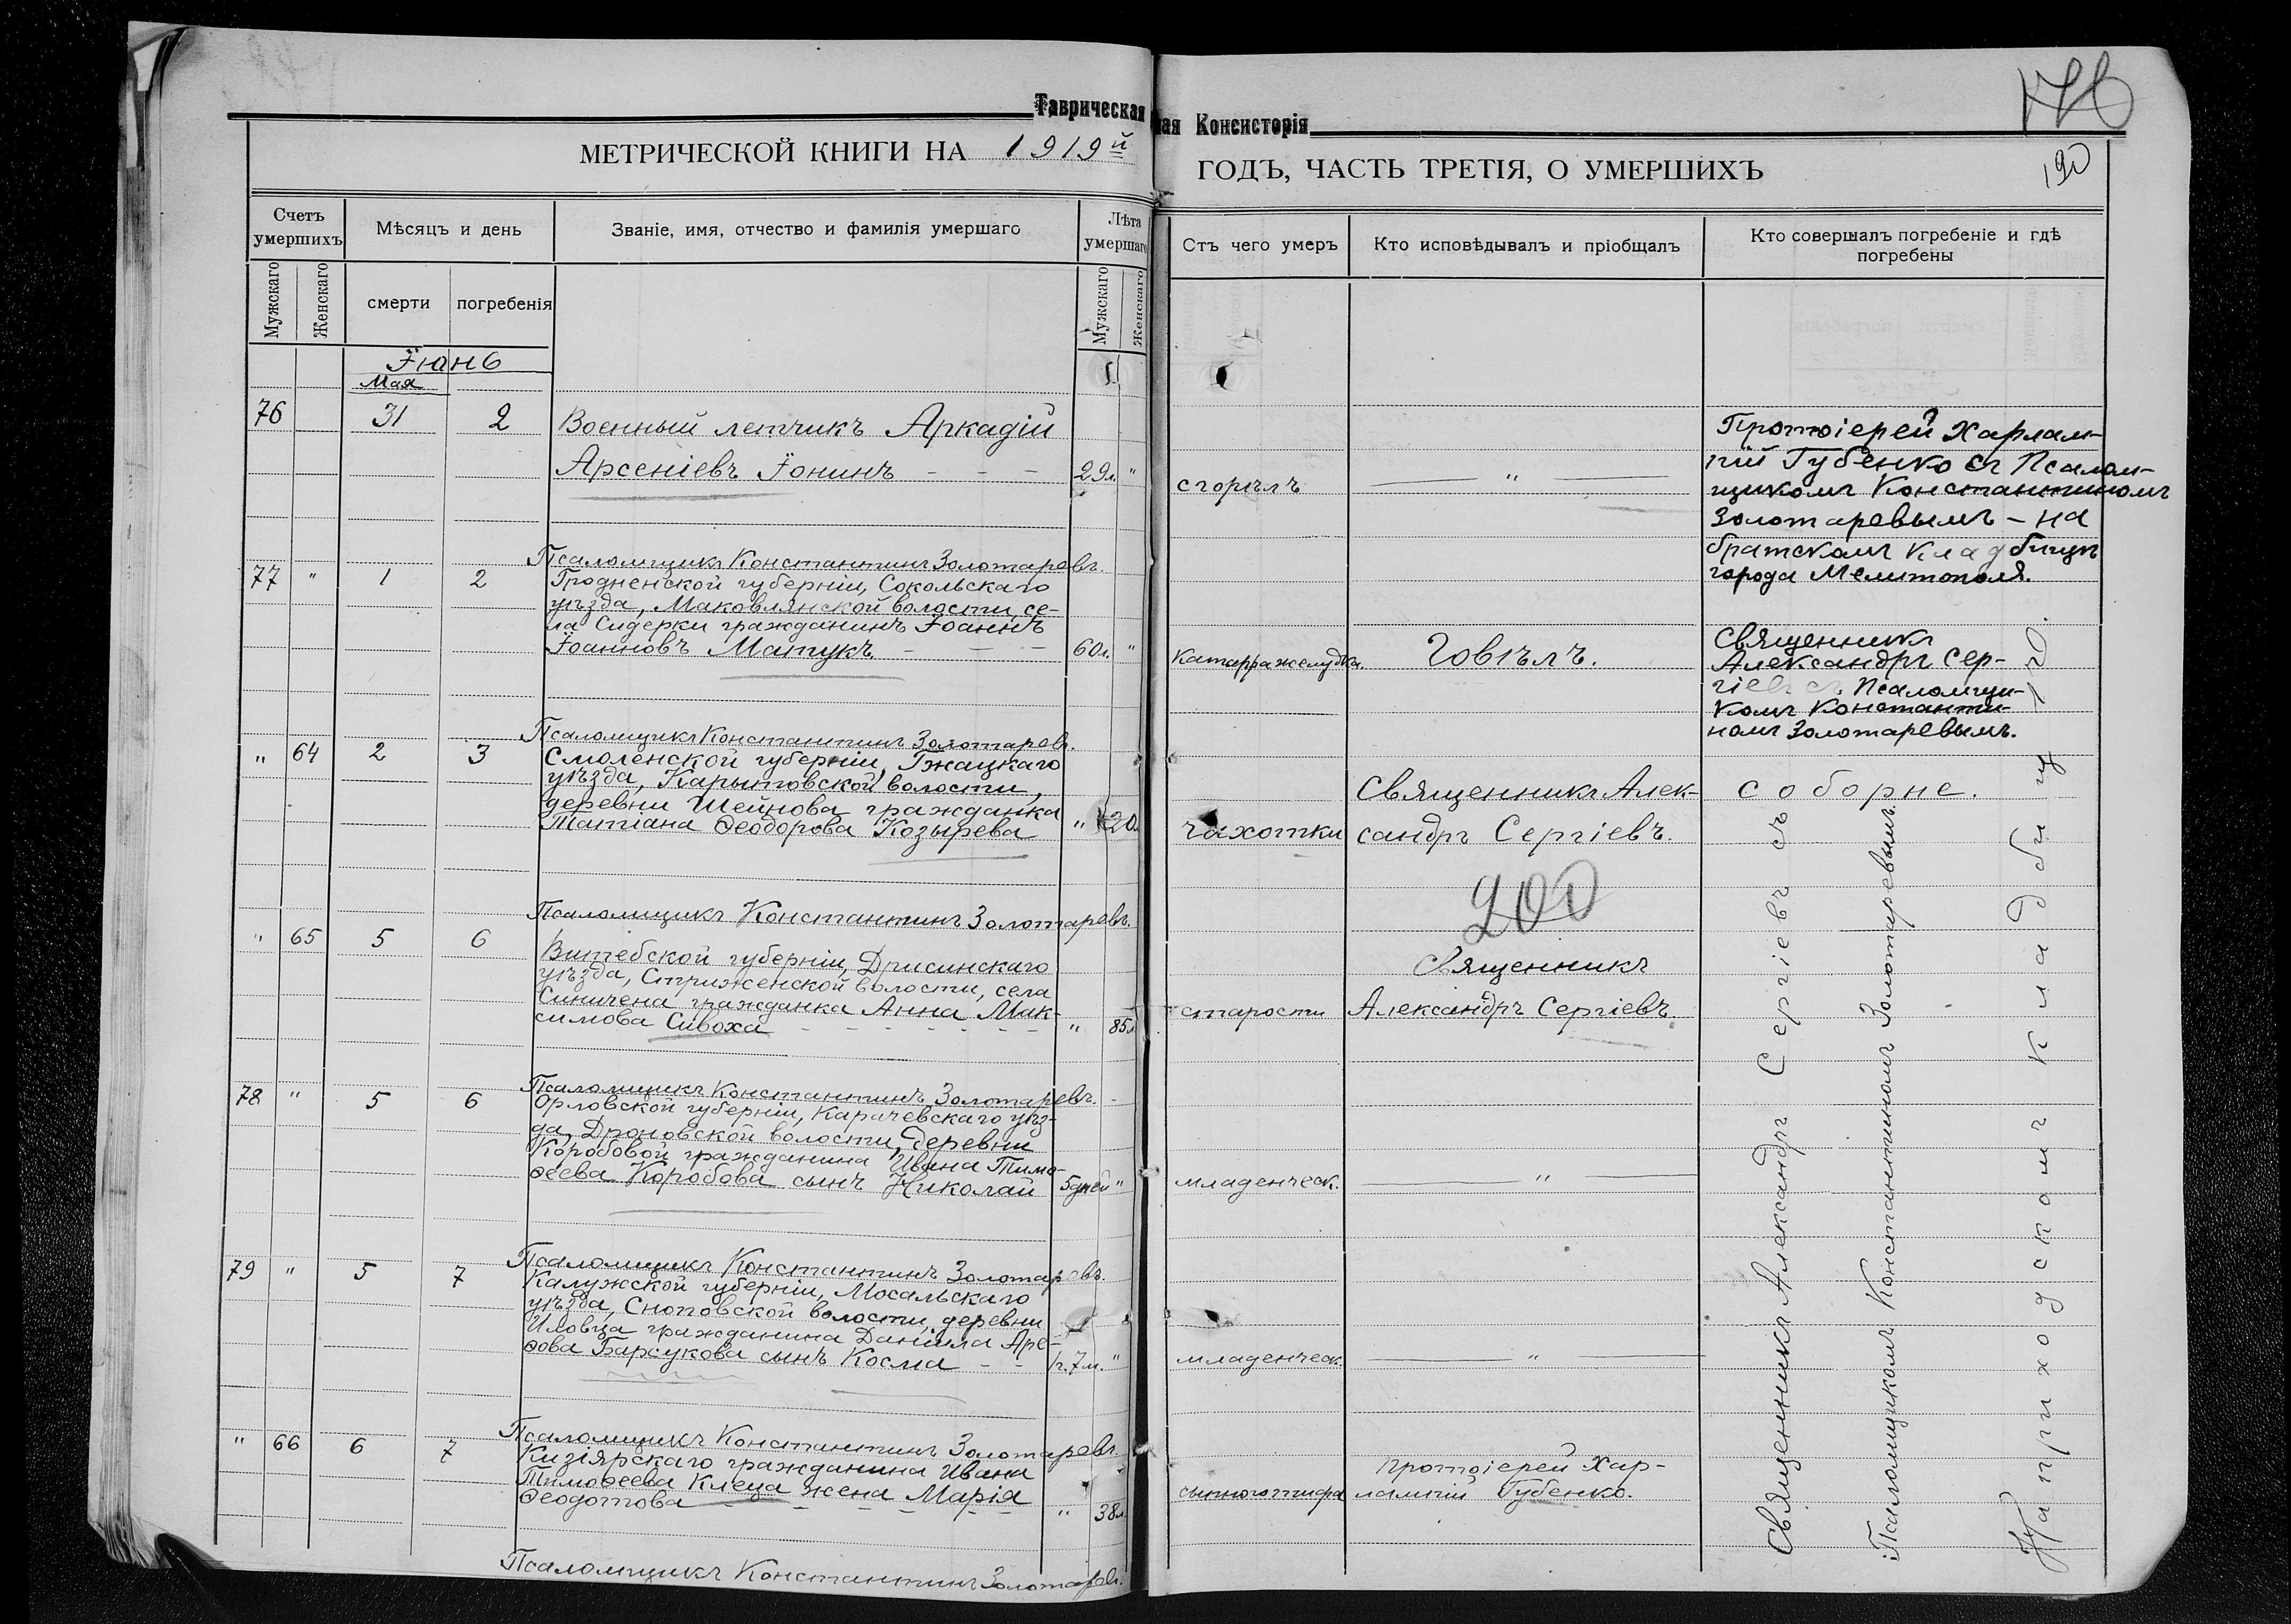 Таврическая
ная Консисторія
МЕТРИЧЕСКОЙ КНИГИ НА 1919й
ГОДЪ, ЧАСТЬ ТРЕТІЯ, О УМЕРШИХЪ
190
Счетъ умершихъ
Мѣсяцъ и день
Званіе, имя, отчество и фамилія умершаго
Лѣта умершаго
Стъ чего умеръ
Кто исповѣдывалъ и пріобщалъ
Кто совершалъ погребеніе и гдѣ
погребены
Мужскаго
Женскаго
смерти
погребенія
Мужскаго
Женскаго
Іюнь
Мая
76 31 2 Военный летчикъ Аркадій
Арсеніевъ Іонинъ - - - 29л. "
сгорѣлъ
— " —
Протоіерей Харлам-
пій Губенко съ Псалом-
щикомъ Константиномъ
Золотаревымъ - на
братскомъ кладбищѣ
города Мелитополя.
Псаломщикъ Константинъ Золотаревъ.
77 " 1 2 Гродненской губерніи, Сокольскаго
уѣзда, Маковлянской волости, се-
ла Сидерки гражданинъ Іоаннъ
Іоанновъ Матукъ. - - - 60л. "
катарра желудка.
Говѣлъ.
Священникъ
Александръ Сер-
гіевъ съ Псаломщи-
комъ Константи-
номъ Золотаревымъ.
Псаломщикъ Константинъ Золотаревъ.
" 64 2 3 Смоленской губерніи, Гжацкаго
уѣзда, Карытовской волости,
деревни Шейнова гражданка
Татіана Ѳеодорова Козырева " 20л.
чахотки
Священникъ Алек-
сандръ Сергіевъ.
соборне.
200
Псаломщикъ Константинъ Золотаревъ.
" 65 5 6 Витебской губерніи, Дрисинскаго
уѣзда, Стриженской волости, села
Синичена гражданка Анна Мак-
симова Сивоха - - - " 85л.
старости
Священникъ
Александръ Сергіевъ.
Псаломщикъ Константинъ Золотаревъ.
78 " 5 6 Орловской губерніи, Карачевскаго уѣз-
да, Дроновской волости, деревни
Коробовой гражданина Ивана Тимо-
ѳеева Коробова сынъ Николай 5 дней "
младенческ.
— " —
Псаломщикъ Константинъ Золотаревъ.
79 " 5 7 Калужской губерніи, Мосальскаго
уѣзда, Сноповской волости, деревни
Иловца гражданина Даніила Аре-
ѳова Барсукова сынъ Косма - - 1г. 7м. "
младенческ.
— " —
Псаломщикъ Константинъ Золотаревъ.
" 66 6 7 Кизіярскаго гражданина Ивана
Тимоѳеева Клеца жена Марія
Ѳеодотова - - - " 38л.
сыпного тифа
Протоіерей Хар-
лампій Губенко.
Псаломщикъ Константинъ Золотаревъ.
Священникъ Александръ Сергіевъ съ
Псаломщикомъ Константиномъ Золотаревымъ.
На приходскомъ кладбищ